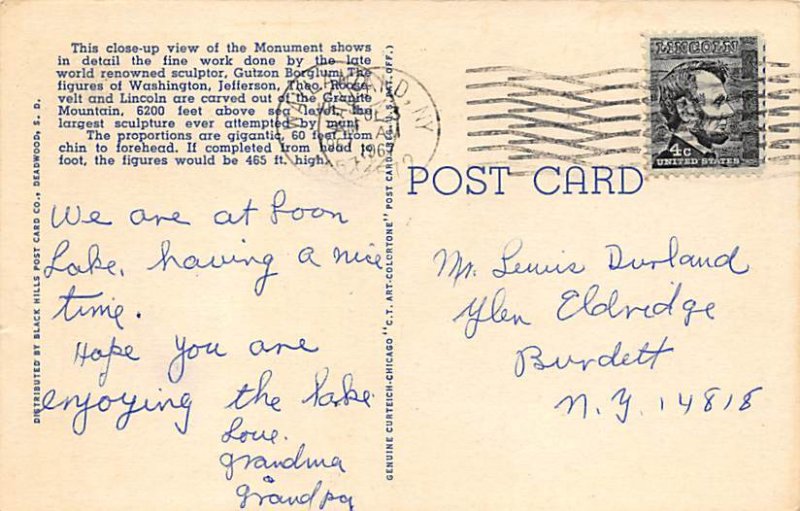 This close-up view of the Monument shows
in detail the fine work done by the late
world renowned sculptor, Gutzon Borglum. The
figures of Washington, Jefferson, Theo. Roose-
velt and Lincoln are carved out of the Granite
Mountain, 6200 feet above sea level, the
largest sculpture ever attempted by man.
The proportions are gigantic, 60 feet from
chin to forehead. If completed from head to
foot, the figures would be 465 ft. high.
DISTRIBUTED BY BLACK HILLS POST CARD CO., DEADWOOD, S. D.
We are at Loon
Lake, having a nice
time.
Hope you are
enjoying the lake.
Love.
Grandma
Grandpa
GENUINE CURTEICH-CHICAGO "C.T. ART-COLORTONE" POST CARD (REG. U.S. PAT. OFF.)
N.Y.
196
LINCOLN
4c
UNITED STATES
POST CARD
Mr. Lewis Durland
Glen Eldridge
Burdett
N.Y. 14818